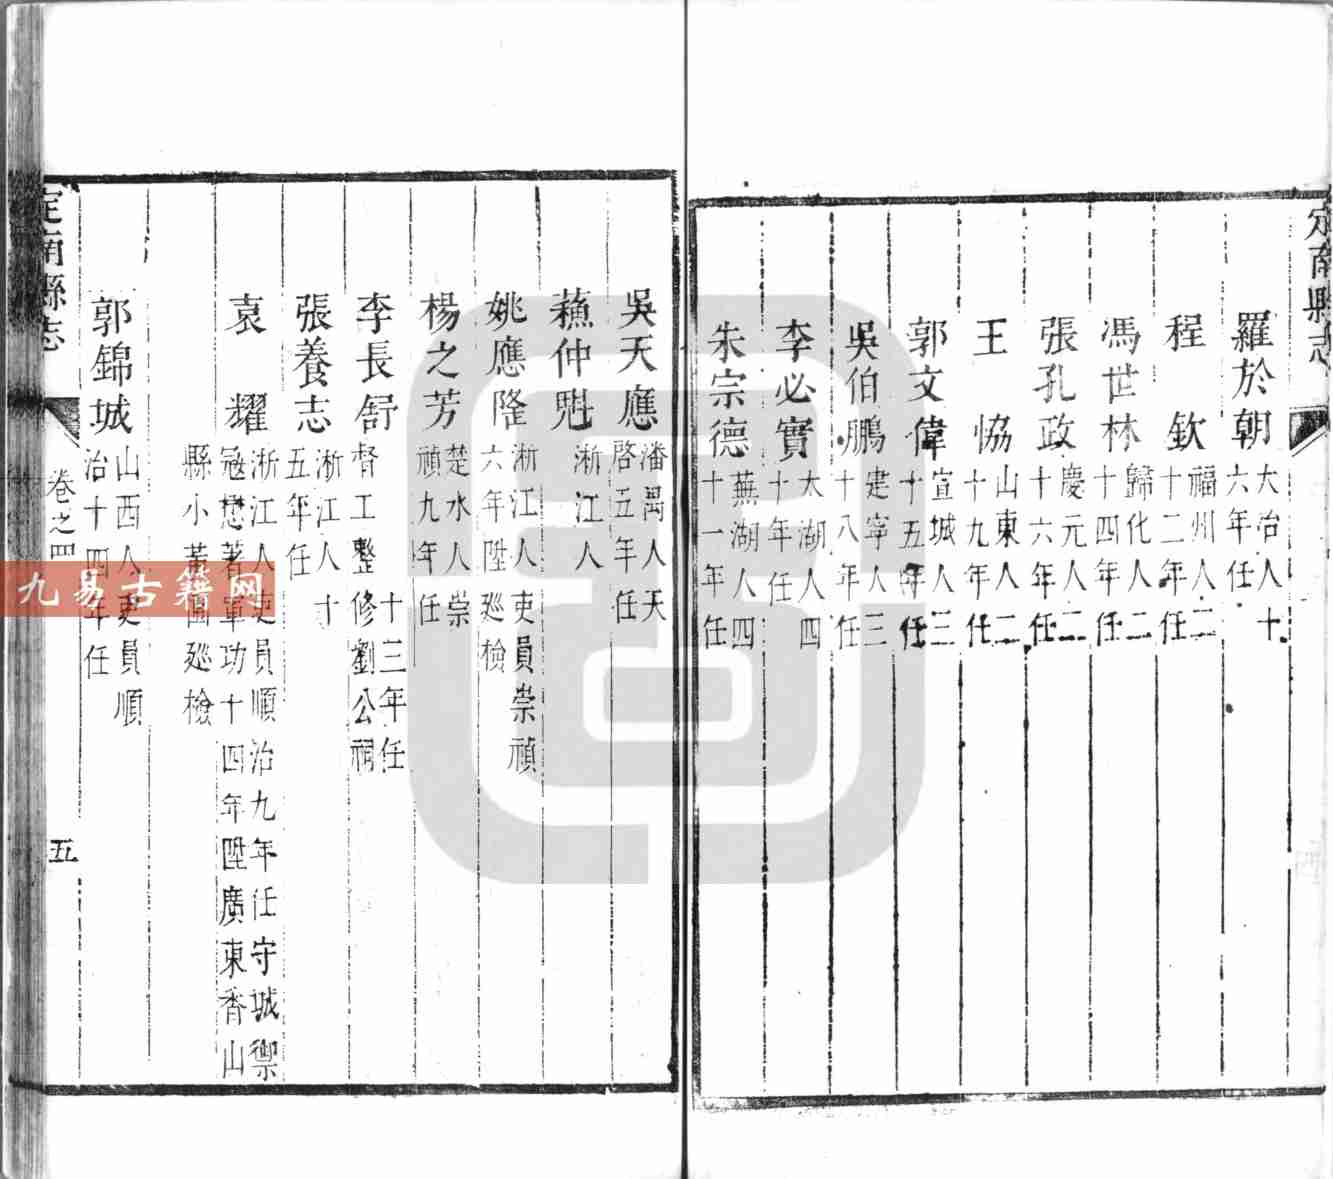 定南縣志
羅於朝 大冶人十六年任
程 欽 福州人二十二年任
馮世林 歸化人二十四年任
張孔政 慶元人二十六年任
王 協 山東人二十九年任
郭文偉 宣城人三十五年任
吳伯鵬 建寧人三十八年任
李必實 太湖人四十年任
朱宗德 蕪湖人四十一年任
吳天應 潘禺人天啓五年任
蘓仲 浙江人
姚應隆 浙江人吏員崇禎六年陞廵檢
楊之芳 楚水人崇禎九年任
李長舒 十三年任督工整修劉公祠
張養志 浙江人十五年任
袁 耀 浙江人吏員順治九年任守城禦冦懋著軍功十四年陞廣東香山
縣小黃圃廵檢
郭錦城 山西人吏員順治十四年任
定南縣志
卷之四
五
九易古籍网